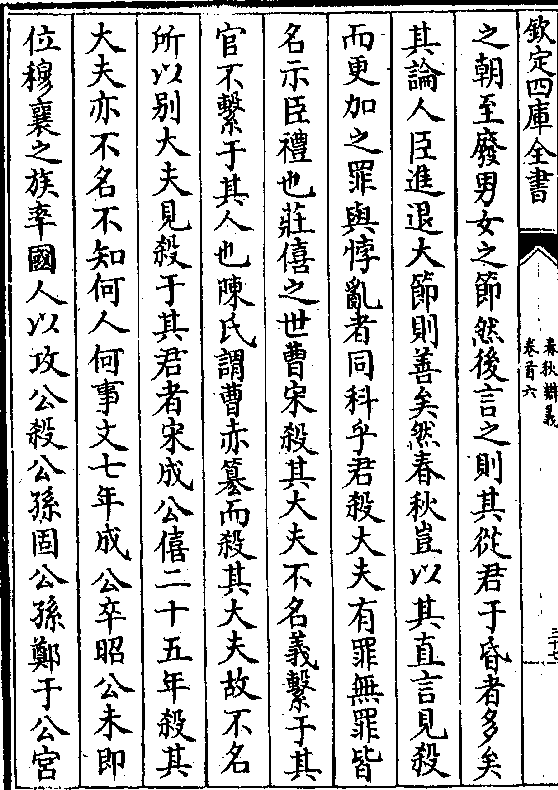 欽定四庫全書
春秋辯義
卷首六
之朝至廢男女之節然後言之則其從君于昏者多矣
其論人臣進退大節則善矣然春秋豈以其直言見殺
而更加之罪與悖亂者同科乎君殺大夫有罪無罪皆
名示臣禮也莊僖之世曹宋殺其大夫不名義繫于其
官不繫于其人也陳氏謂曹赤簒而殺其大夫故不名
所以别大夫見殺于其君者宋成公僖二十五年殺其
大夫亦不名不知何人何事文七年成公卒昭公未即
位穆襄之族率國人以攻公殺公孫固公孫鄭于公宮